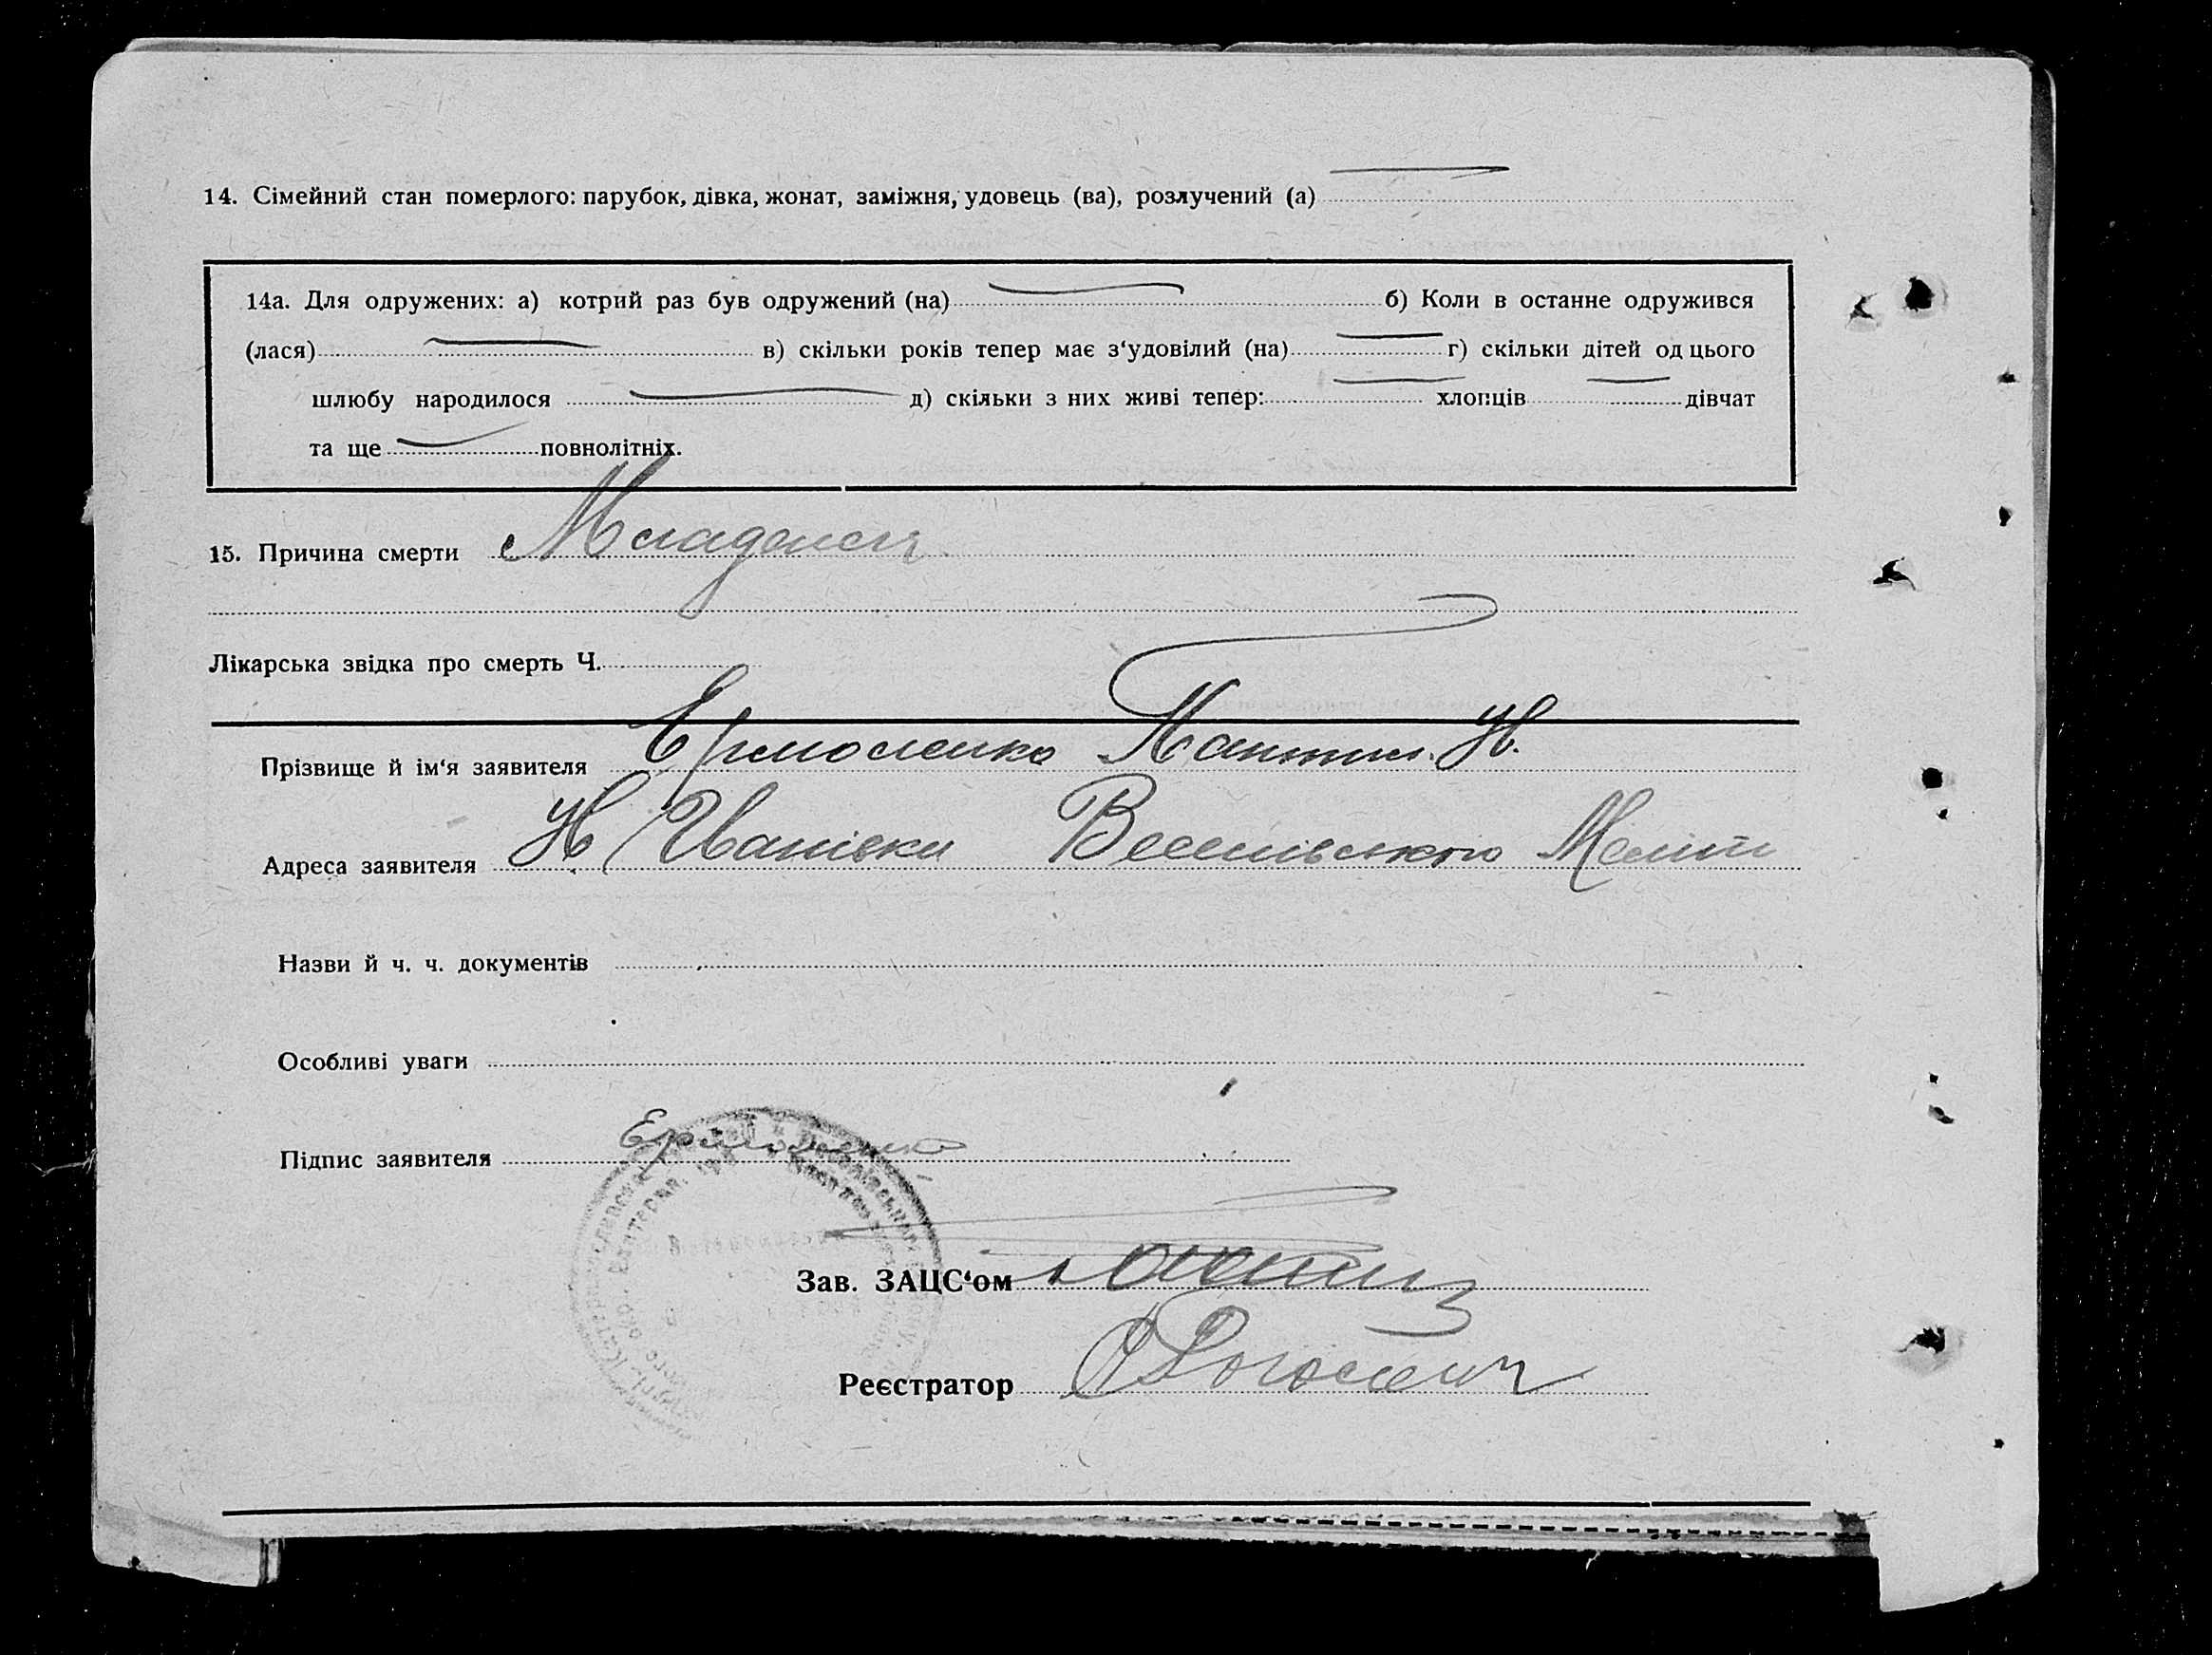 14. Сімейний стан померлого: парубок, дівка, жонат, заміжня, удовець (ва), розлучений (а)
14а. Для одружених: а) котрий раз був одружений (на) б) Коли в останне одружився
(лася) в) скільки років тепер має з‘удовілий (на) г) скільки дітей од цього
шлюбу народилося д) скільки з них живі тепер: хлопців дівчат
та ще повнолітніх.
15. Причина смерти Младенч
Лікарська звідка про смерть Ч.
Прізвище й ім‘я заявителя Ермоленко
Адреса заявителя Н Иванівки Веселівського Меліт
Назви й ч. ч. документів
Особливі уваги
Підпис заявителя Ермоленко
Зав. ЗАЦС‘ом
Реєстратор